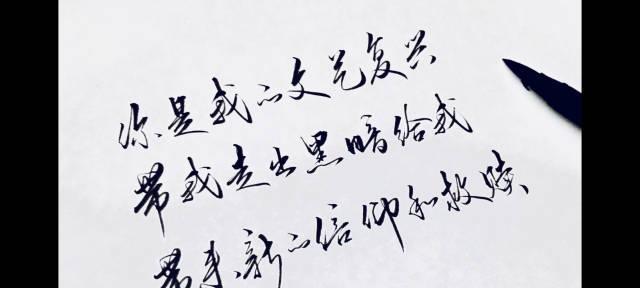 你是我的文艺复兴
带我走出黑暗给我
带来新的信仰和救赎